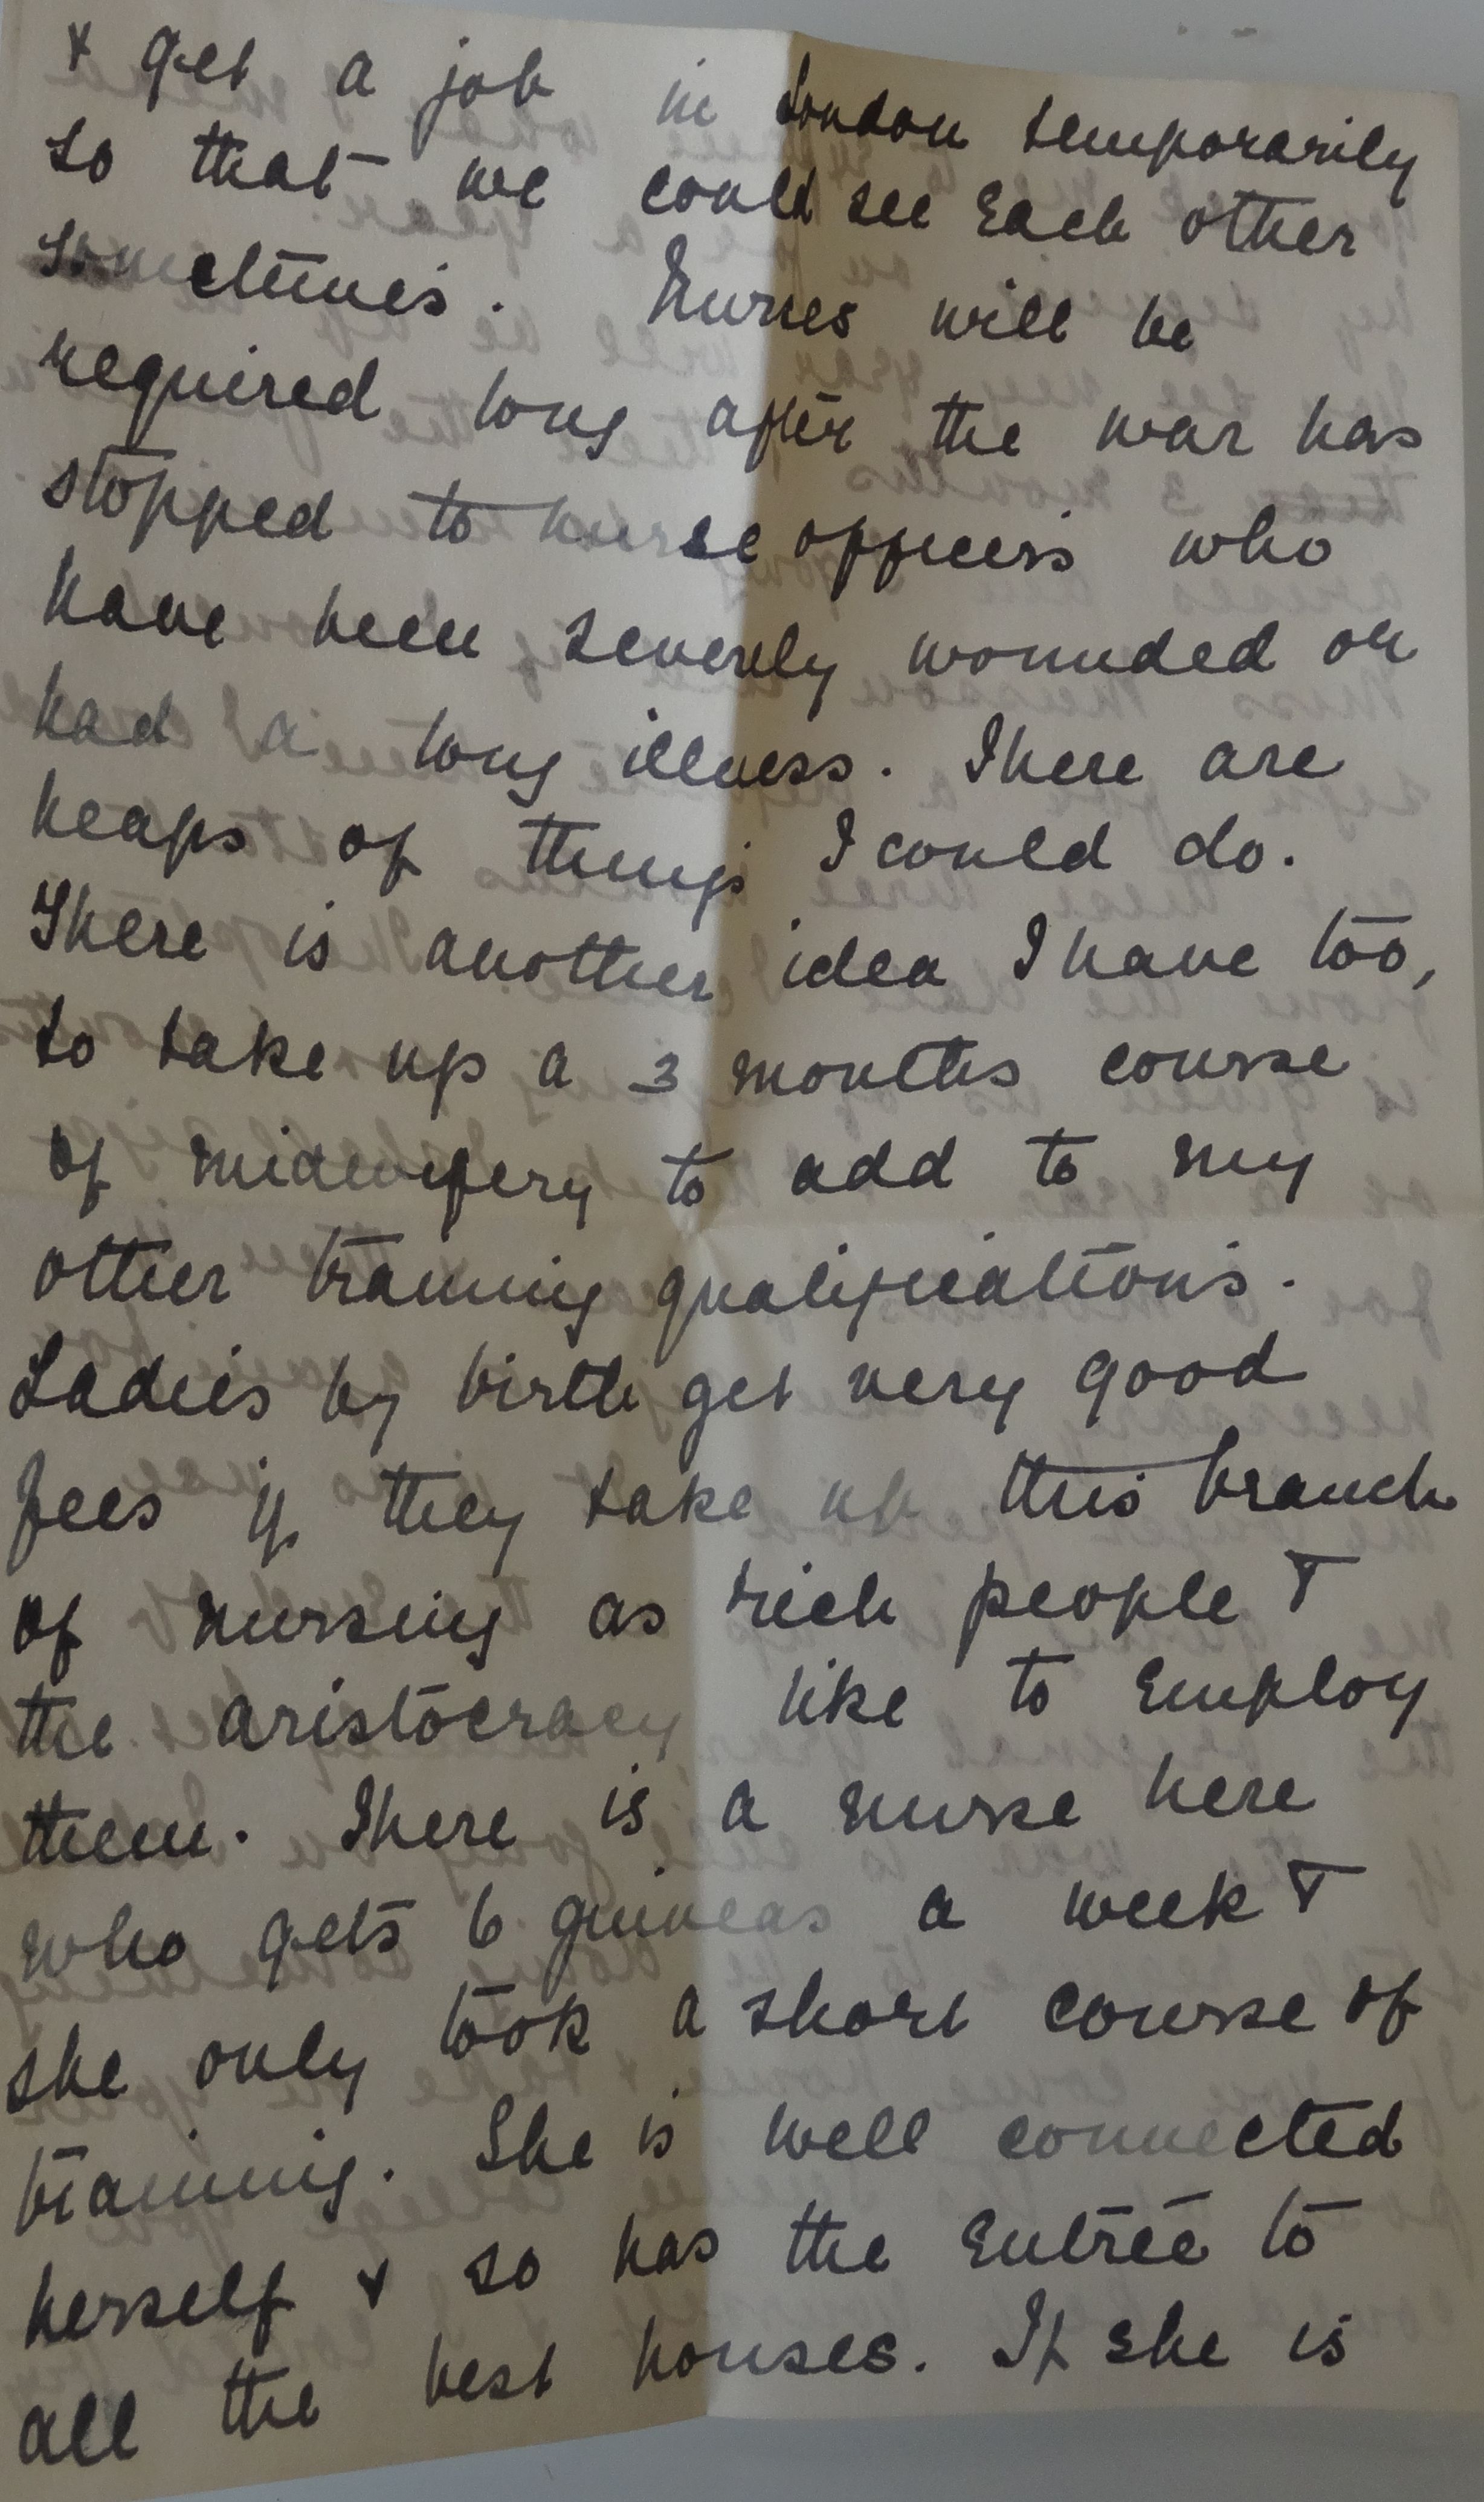 & get a job in London temporarily
so that we could see each other
sometimes. Nurses will be
required long after the war has
stopped to nurse officers who
have been severely wounded or
had a long illness. There are
heaps of things I could do.
There is another idea I have too,
to take up a 3 months course
of midwifery to add to my
other training qualifications.
Ladies by birth get very good
fees if they take up this branch
of nursing as rich people &
the aristocracy like to employ
them. There is a nurse here
who gets 6 guineas a week &
she only took a short course of
training. She is well connected
herself & so has the entrée to
all the best houses. If she is